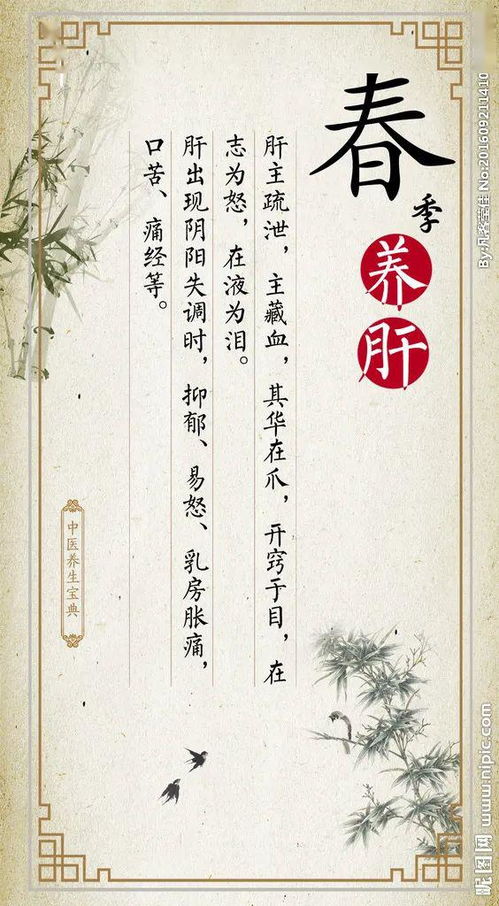 春季养肝
肝主疏泄，主藏血，其华在爪，开窍于目，在
志为怒，在液为泪。
肝出现阴阳失调时，抑郁、易怒、乳房胀痛，
口苦、痛经等。
中医养生宝典
昵图网 www.nipic.com